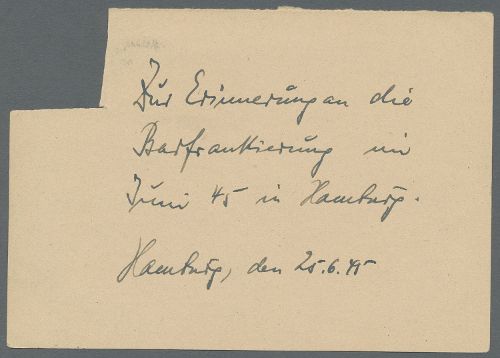 Zur Erinnerung an die
Barfrankierung im
Juni 45 in Hamburg.
Hamburg, den 25.6.45